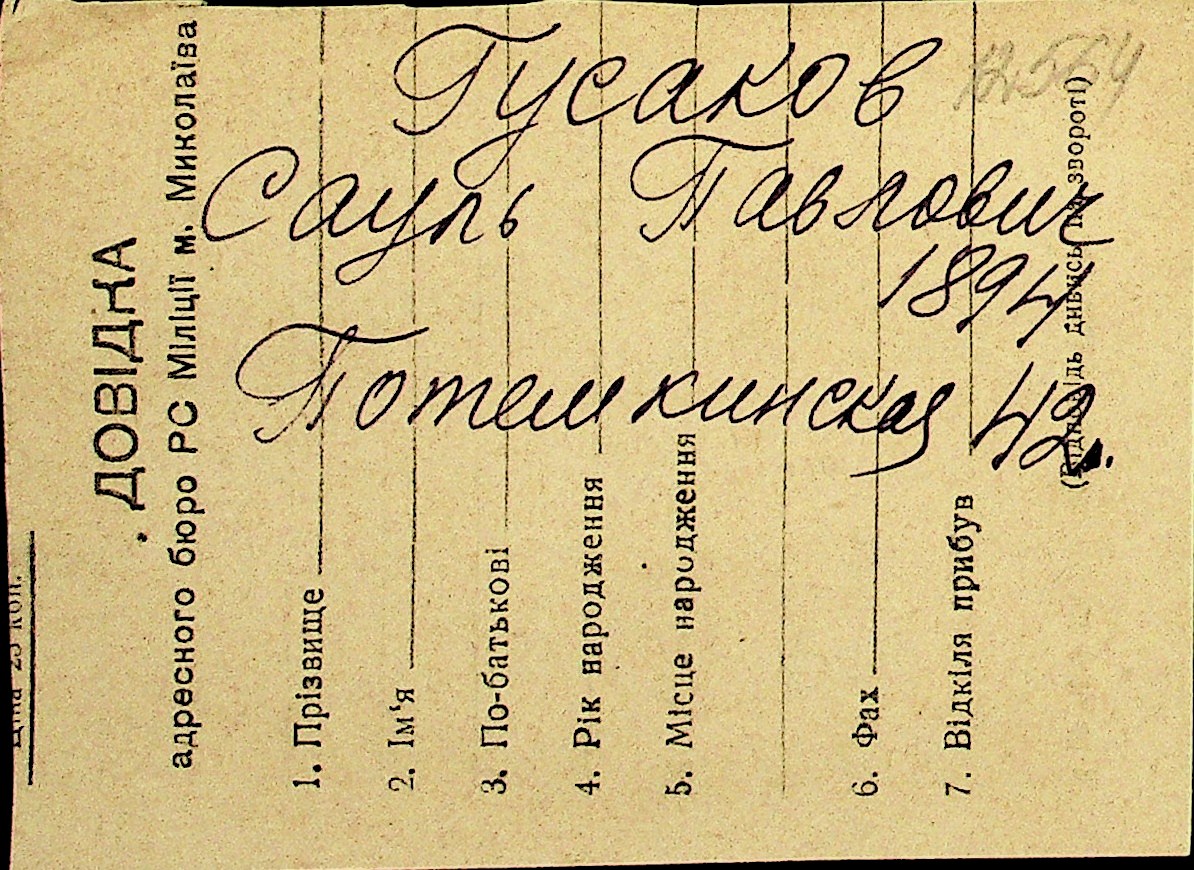 Гусаков
Сауль Павлович
1894
Потемкинская 42.
Ціна 25 коп.
ДОВІДКА
адресного бюро РС Міліції м. Миколаїва
1. Прізвище
2. Ім'я
3. По-батькові
4. Рік народження
5. Місце народження
6. Фах
7. Відкіля прибув
(Відповідь дивись на звороті)